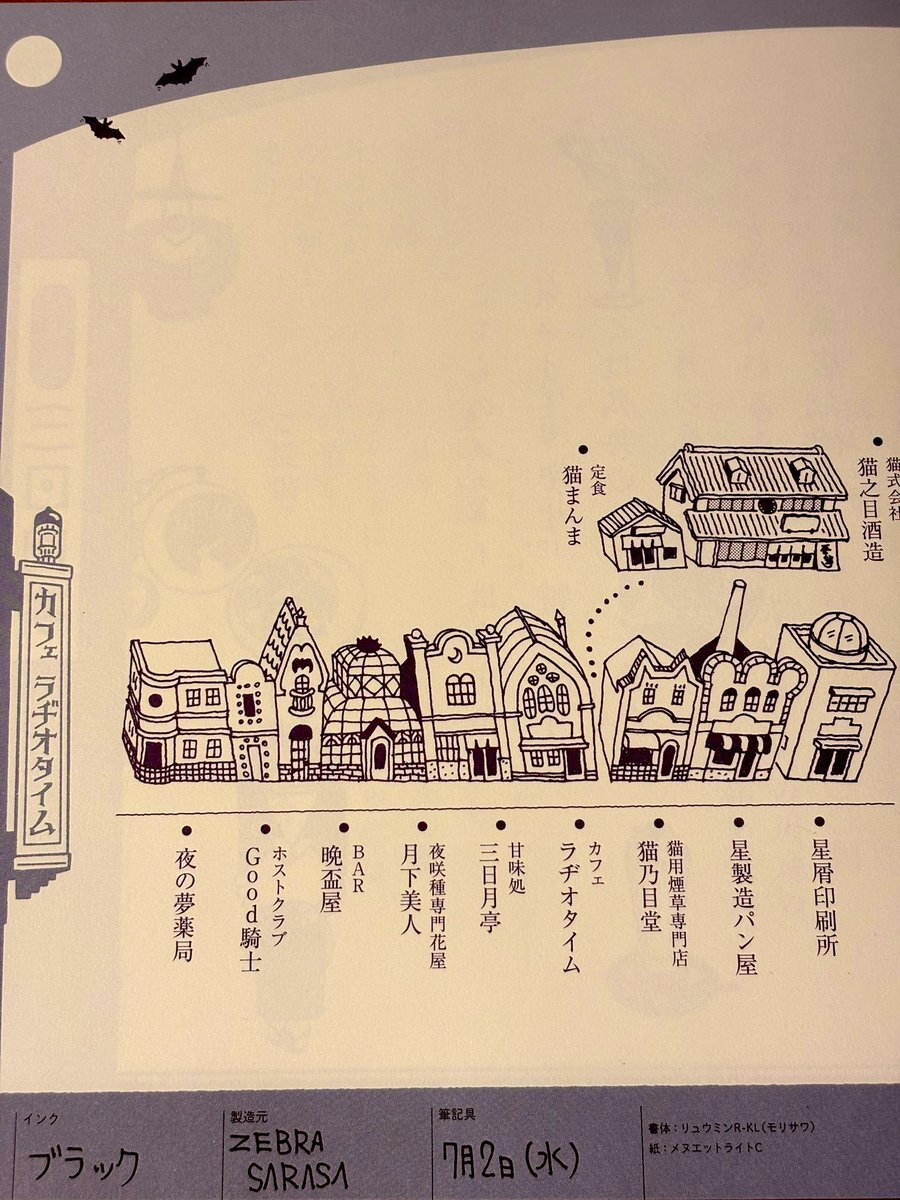 猫式会社
猫之目酒造
定食
猫まんま
カフェ ラヂオタイム
星屑印刷所
星製造パン屋
猫用煙草専門店
猫乃目堂
カフェ
ラヂオタイム
甘味処
三日月亭
夜咲種専門花屋
月下美人
BAR
晩盃屋
ホストクラブ
Good騎士
夜の夢薬局
インク
ブラック
製造元
ZEBRA
SARASA
筆記具
7月2日(水)
書体:リュウミンR-KL(モリサワ)
紙:メヌエットライトC